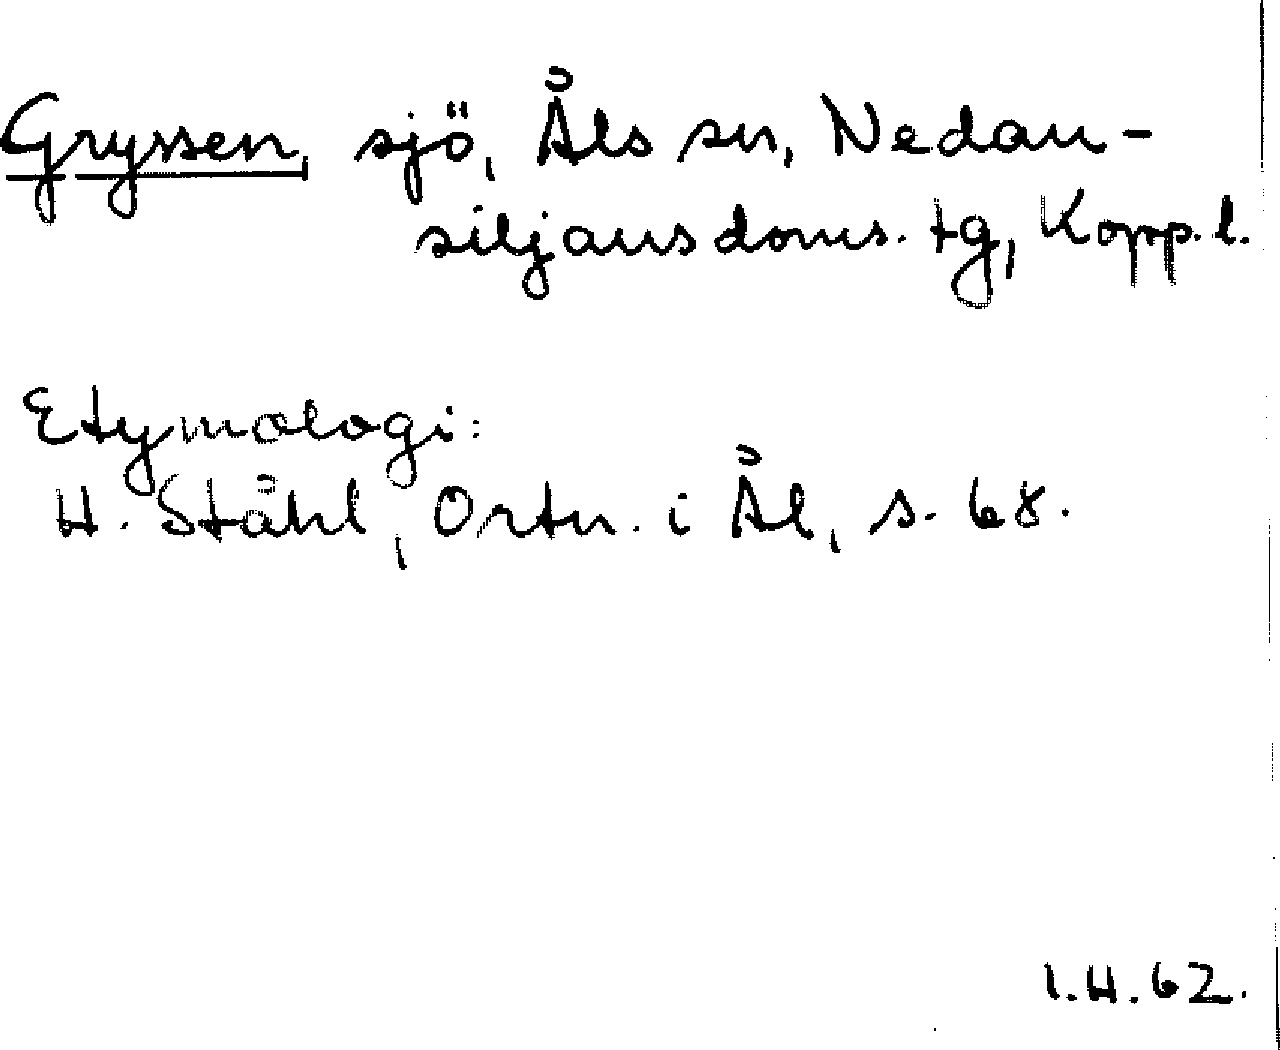 Gryssen, sjö, Åls sn, Nedan-
siljansdoms. tg, Kopp. l.
Etymologi:
H. Ståhl, Ortn. i Ål, s. 68.
I.H. 62.